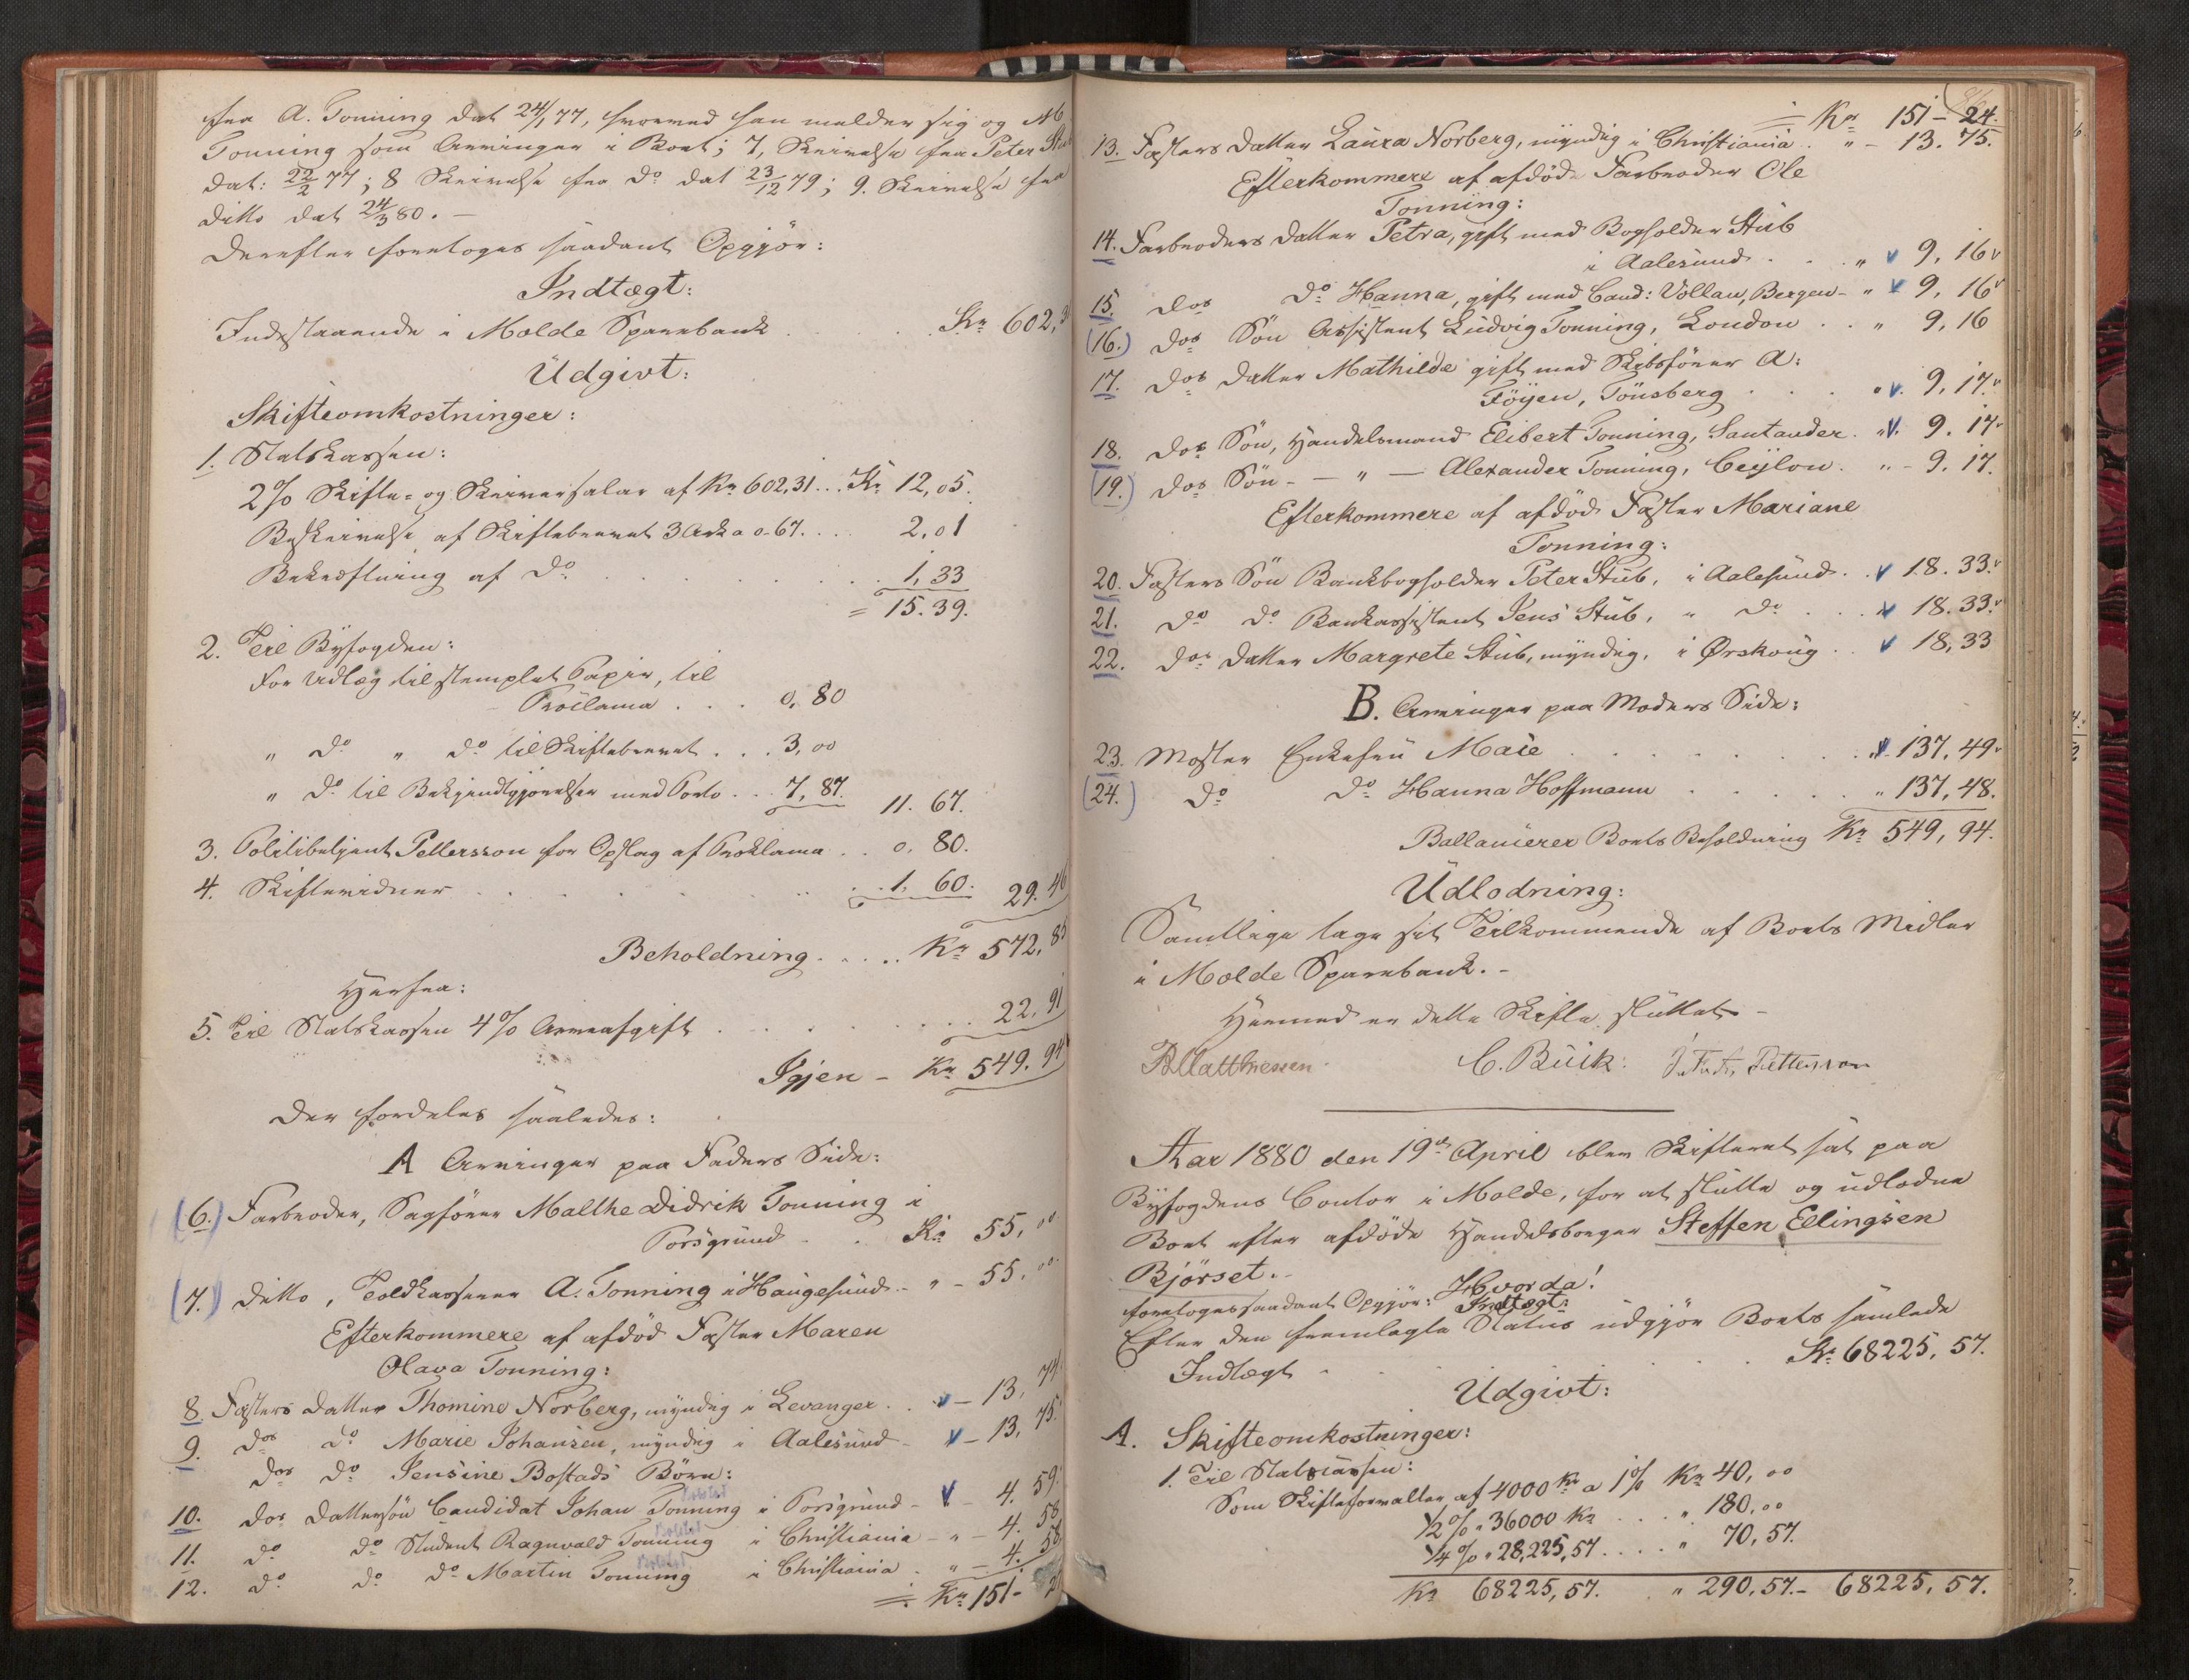 fra A. Tonning dat 24/1 77, hvorved han melder sig og M
Tonning som Arvinger i Boet; 7, Skrivelse fra Peter Stub
dat: 22/2 77; 8 Skrivelse fra Do dat 23/12 79; 9. Skrivelse fra
ditto dat 24/3 80. —
Derefter foretoges saadant Opgjör:
Indtægt:
Indestaaende i Molde Sparebank . . . Kr 602,3
Udgivt:
Skifteomkostninger:
1. Statskassen:
2% Skifte- og Skriversalær af Kr 602,31... Kr 12,05.
Beskrivelse af Skiftebrevet 3 Ark a 0-67. . . . 2,01
Bekræftning af Do . . . . 1,33
= 15.39.
2. Til Byfogden:
For Udlæg til stemplet Papir, til
Proclama . . . 0,80
" Do " Do til Skiftebrevet . . . 3,00
" Do til Bekjendtgjörelser med Porto . . . 7,87. 11.67.
3. Politibetjent Pettersson for Opslag af Proklama . . 0,80.
4. Skiftevidner . . . . 1,60. 29.46
Beholdning. . . . . Kr 572,85
Herfra:
5. Til Statskassen 4% Arveafgift . . . . 22,91
Igjen - Kr 549.94
Der fordeles saaledes:
A Arvinger paa Faders Side:
(6.) Farbroder, Sagförer Malthe Didrik Tonning i
Porsgrund . . Kr 55,00
(7.) Ditto, Toldkasserer A. Tonning i Haugesund.. " - 55,00
Efterkommere af afdöd Faster Maren
Olava Tonning:
8. Fasters Datter Thomine Norberg, myndig i Levanger . . v - 13,74
9. Dos Do Marie Johansen, myndig i Aalesund - v - 13,75.
Dos Do Jensine Bostads Börn:
Bolstad
10. Dos Dattersön Candidat Johan Tonning i Porsgrund - v - 4.59.
Bolstad
11. Do Do Student Ragnvald Tonning i Christiania - " - 4.58
Bolstad
12. Do Do Do Martin Tonning i Christiania . " - 4.58
= Kr 151-24
= Kr 151-24.
13. Fasters Datter Laura Norberg, myndig i Christiania . " - 13.75.
Efterkommere af afdöde Farbroder Ole
Tonning:
14. Farbroders Datter Petra, gift med Bogholder Stub
i Aalesund . . . " v 9,16 v
15. Dos Do Hanna, gift med Cand: Vollan, Bergen - " v 9,16 v
(16.) Dos Sön Assistent Ludvig Tonning, London . . " 9,16
17. Dos Datter Mathilde gift med Skibsförer A:
Föyen, Tönsberg . . . . " v. 9,17. v
18. Dos Sön, Handelsmand Elibert Tonning, Santander. " v. 9.17 v
(19.) Dos Sön - - " — Alexander Tonning, Ceylon. " - 9.17.
Efterkommere af afdöd Faster Mariane
Tonning:
20. Fasters Sön Bankbogholder Peter Stub, i Aalesund . . v 18.33. v
21. Do Do Bankassistent Jens Stub, " Do . . . v 18.33. v
22. Dos Datter Margrete Stub, myndig, i Ørskoug . . v 18,33
B. Arvinger paa Moders Side:
23. Moster Enkefru Maie . . . . . . " v. 137,49 v
(24.) Do Do Hanna Hoffmann . . . . . " 137,48.
Ballancerer Boets Beholdning Kr 549,94.
Udlodning:
Samtlige tage sit Tilkommende af Boets Midler
i Molde Sparebank. -
Hermed er dette Skifte sluttet -
P. Matthiessen. C. Buck: J. Fr. Fr. Pettersson
Aar 1880 den 19de April blev Skifteret sat paa
Byfogdens Contor i Molde, for at slutte og udlodne
Boet efter afdöde Handelsborger Steffen Ellingsen
Björset. -
Hvorda!
foretoges saadant Opgjör: Indtægt:
Efter den fremlagte Status udgjör Boets samlede
Indtægt - . . . . . Kr 68225,57.
Udgivt:
A. Skifteomkostninger:
1. Til Statscassen:
Som Skifteforvalter af 4000 Kr a 1% Kr 40,00
1/2 % " 36000 Kr . . . " 180,00
1/4 % " 28,225,57 . . . . " 70,57.
Kr 68225,57. " 290,57.- 68225,57.